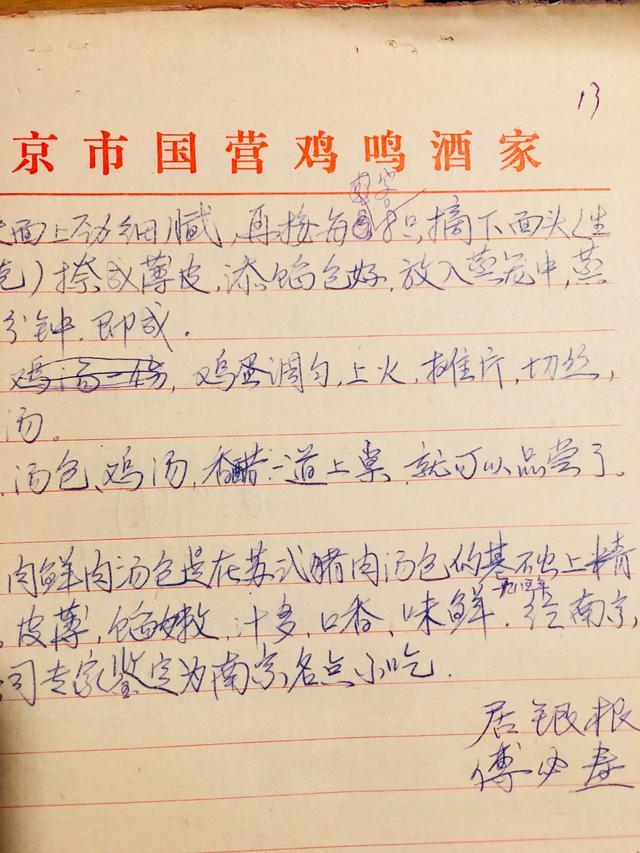 13
京市国营鸡鸣酒家
面上劲细腻,再按每只摘下面头(生
)擀成薄皮,添馅包好,放入蒸笼中,蒸
分钟.即成.
鸡汤 鸡蛋调匀,上火,摊片,切丝,
汤。
汤包、鸡汤,香醋一道上桌,就可以品尝了。
肉鲜肉汤包是在苏式猪肉汤包的基础上精
皮薄,馅嫩,汁多,口香,味鲜.经南京,
司专家鉴定为南京名点小吃.
居银根
傅